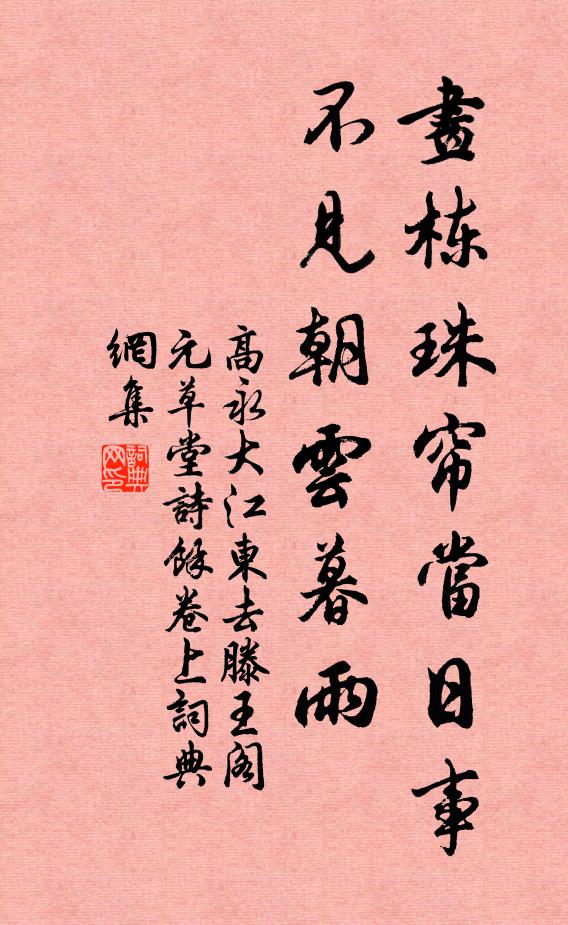 畫栋珠帘當日事
不見朝雲暮雨
高永大江東去滕王阁
元草堂詩餘卷上詞典
網集
詞典網印